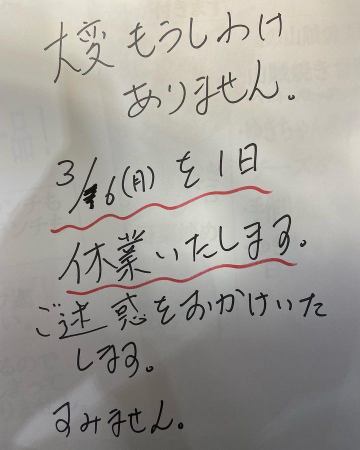 大変もうしわけ
ありません。
3/16(月)を1日
休業いたします。
ご迷惑をおかけいた
します。
すみません。